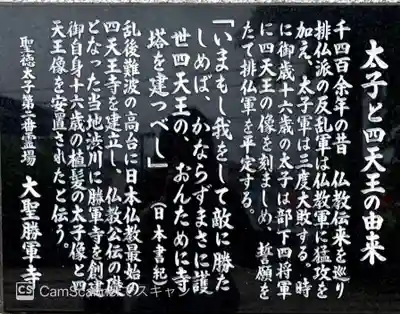 太子と四天王の由来
千四百余年の昔　仏教伝来を巡り
排仏派の反乱軍は仏教軍に猛攻を
加え、太子軍は三度大敗する。時
に御歳十六歳の太子は部下四将軍
に四天王の像を刻ましめ、誓願を
たて排仏軍を平定する。
「いまもし我をして敵に勝た
しめば、かならずまさに護
世四天王の、おんために寺
塔を建つべし」（日本書紀）
乱後難波の高台に日本仏教最初の
四天王寺を建立し、仏教公伝の礎
となった当地渋川に勝軍寺を創建
御自身十六歳の植髪の太子像と四
天王像を安置されたと伝う。
聖徳太子第二番霊場　大聖勝軍寺
CS CamScannerでスキャン